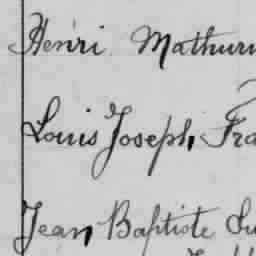 Henri Mathurin
Louis Joseph Fra
Jean Baptiste Lu